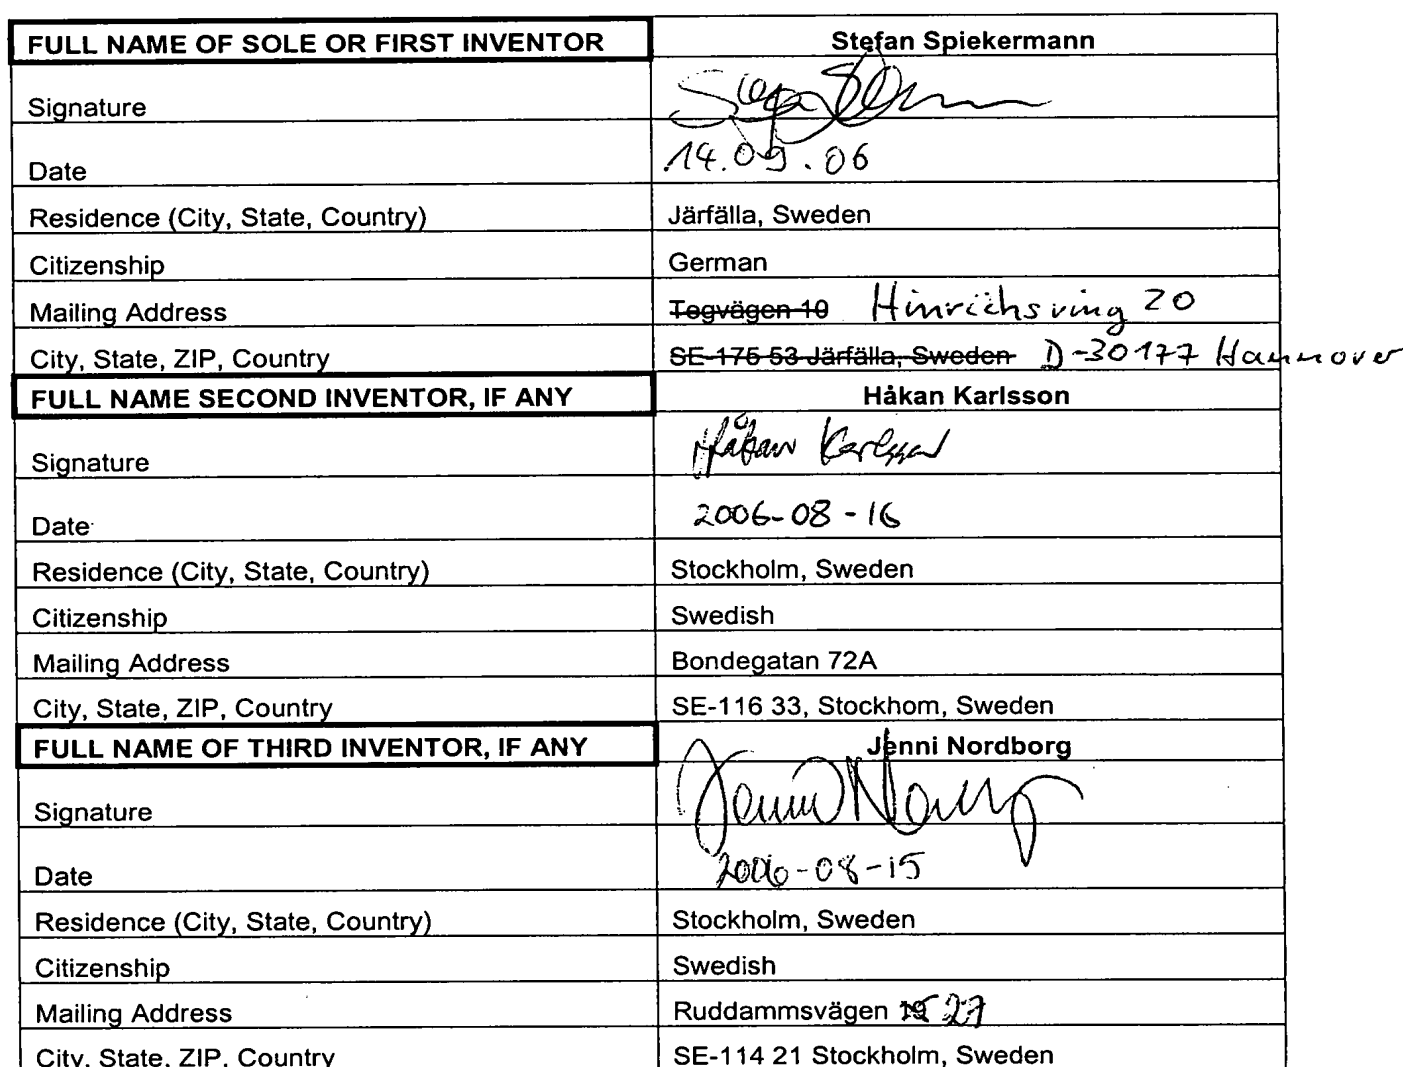 FULL NAME OF SOLE OR FIRST INVENTOR Stefan Spiekermann
Signature
Date 14.09.06
Residence (City, State, Country) Järfälla, Sweden
Citizenship German
Mailing Address Tegvägen 10 Hinrichsring 20
City, State, ZIP, Country SE-175 53 Järfälla, Sweden D-30177 Hannover
FULL NAME SECOND INVENTOR, IF ANY Håkan Karlsson
Signature Håkan Karlsson
Date 2006-08-16
Residence (City, State, Country) Stockholm, Sweden
Citizenship Swedish
Mailing Address Bondegatan 72A
City, State, ZIP, Country SE-116 33, Stockhom, Sweden
FULL NAME OF THIRD INVENTOR, IF ANY Jenni Nordborg
Signature Jenni Nordborg
Date 2006-08-15
Residence (City, State, Country) Stockholm, Sweden
Citizenship Swedish
Mailing Address Ruddammsvägen 27
City, State, ZIP, Country SE-114 21 Stockholm, Sweden